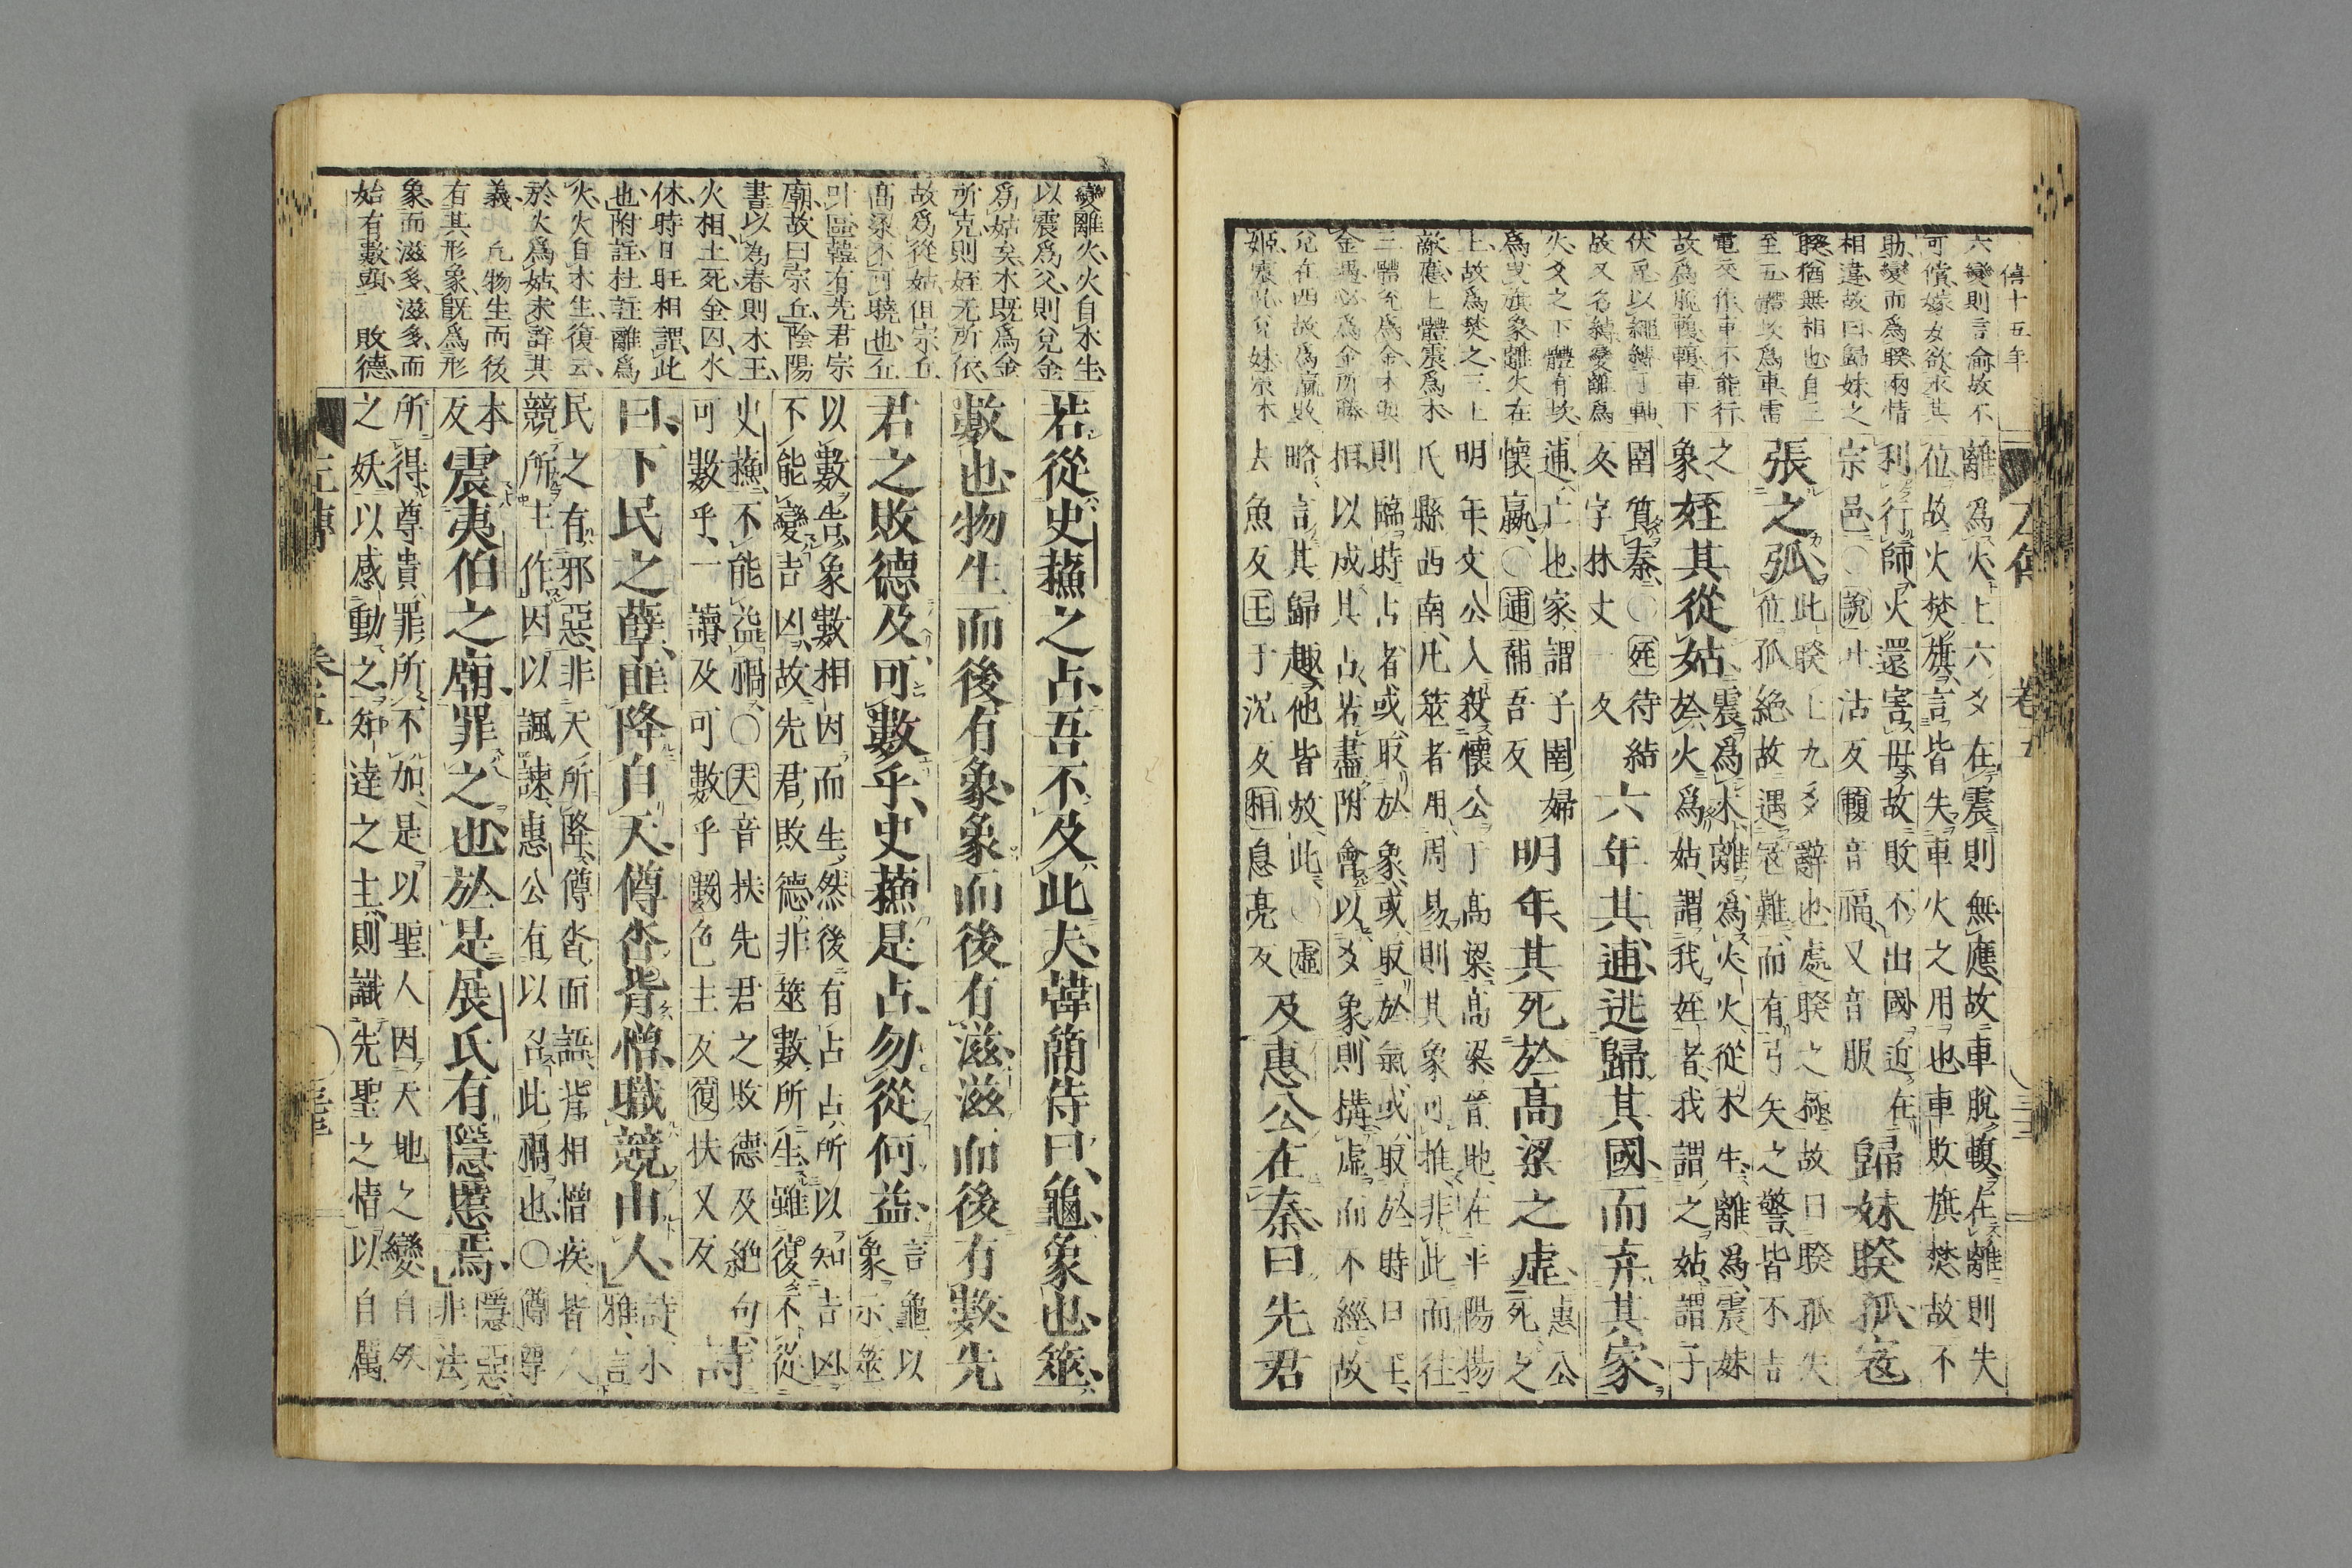 僖十五年
六變則言俞故不
可償嫁女欲求其
助變而爲睽兩情
相違故曰歸妹之
睽猶無相也自三
至五體坎爲車需
電交作車不能行
故爲脫輹輹車下
伏兎以繩縛于軸
故又名縛變離爲
火火之下體有坎
爲
上故爲焚之三上
敵應上體震爲木
三體兌爲金木與
金遇必爲金所勝
兌在西故爲嬴敗
姬震
左傳 卷五 三三
離爲火上六爻在震則無應故車脫輹在離則失
位故火焚旗言皆失車火之用也車敗旗焚故不
利行師火還害母故敗不出國近在
宗邑〇說吐活反輹音福又音服
歸妹睽孤寇
張之弧
此睽上九爻辭也處睽之極故曰睽孤失
位孤絕故遇寇難而有弓矢之警皆不吉
之
象
姪其從姑
震爲木離爲火火從木生離爲震妹
於火爲姑謂我姪者我謂之姑謂子
圉質秦〇姪待結
反字林丈一反
六年其逋逃歸其國而弃其家
逋亡也家謂子圉婦
懷嬴〇逋補吾反
明年其死於高梁之虛
惠公
死之
明年文公入殺懷公于高梁高梁晉地在平陽楊
氏縣西南凡筮者用周易則其象可推非此而往
則臨時占者或取於象或取於氣或取於時日王
相以成其占若盡附會以爻象則構虛而不經故
略言其歸趣他皆放此〇虛
去魚反王于況反相息亮反
及惠公在秦曰先君
變離火火自木生
以震爲父則兌金
爲姑矣木既爲金
所克則姪无所依
故爲從姑但宗丘
高梁不可曉也丘
叶區韓有先君宗
廟故曰宗丘陰陽
書以為春則木王
火相土死金囚水
休時日旺相謂此
也附註杜註離爲
火火自木生復云
於火爲姑未詳其
義 凡物生而後
有其形象既爲形
象而滋多滋多而
始有數頭 敗德
若從史蘇之占吾不及此夫韓簡侍曰龜象也筮
數也物生而後有象象而後有滋滋而後有數先
君之敗德及可數乎史蘇是占勿從何益
言龜以
象示筮
以數告象數相因而生然後有占占所以知吉凶
不能變吉凶故先君敗德非筮數所生雖復不從
史蘇不能益禍〇夫音扶先君之敗德及絶句
可數乎一讀及可數乎數色主反復扶又反
詩
曰下民之孽匪降自天僔沓背憎職競由人
詩小
雅言
民之有邪惡非天所降僔沓面語背相憎疾皆人
競所主作因以諷諫惠公有以召此禍也〇僔尊
本
反
震夷伯之廟罪之也於是展氏有隱慝焉
隱惡
非法
所得尊貴罪所不加是以聖人因天地之變自然
之妖以感動之知達之主則識先聖之情以自厲
左傳 卷五